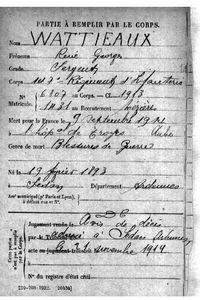 PARTIE À REMPLIR PAR LE CORPS.
Nom WATTIEAUX
Prénoms René Georges
Grade Sergent
Corps 147e Régiment d'Infanterie
N° 6807 au Corps. — Cl. 1913
Matricule. 1431 au Recrutement Mézières
Mort pour la France le 9 septembre 1914
à l'hôp. de Troyes Aube
Genre de mort Blessures de guerre
Né le 19 février 1893
à Sedan Département Ardennes
Arr municipal (p Paris et Lyon),
à défaut rue et N°.
Cette partie
n'est pas à remplir
par le Corps.
Jugement rendu le Avis de décès
par le Tribunal à Sedan Ardennes
acte ou jugement transcrit le 21 novembre 1914
N° du registre d'état civil